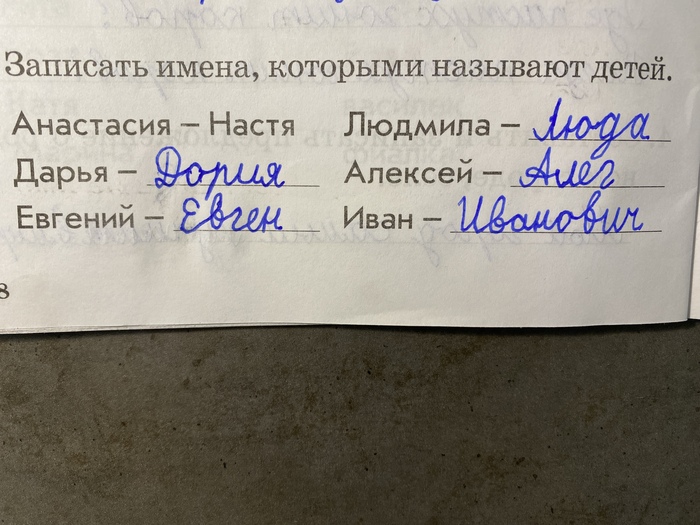 Записать имена, которыми называют детей.
Анастасия – Настя Людмила – Люда
Дарья – Дория Алексей – Алег
Евгений – Евген Иван – Иванович
8